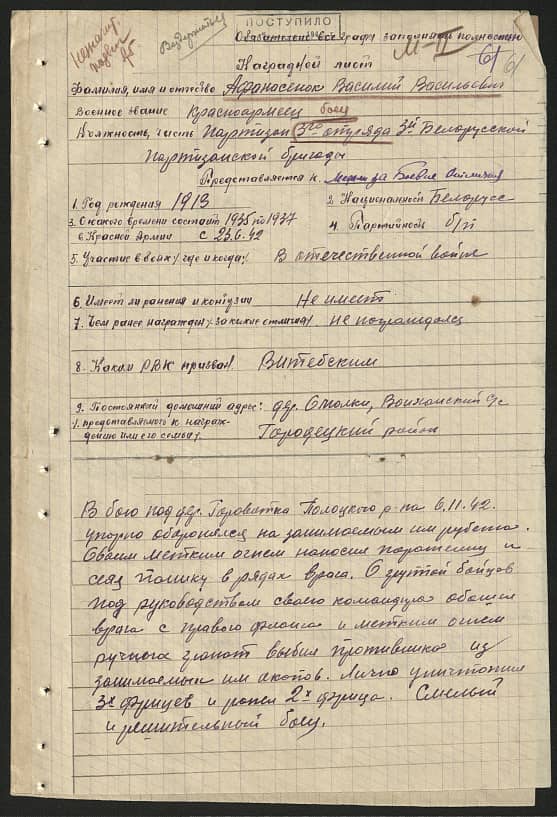 ПОСТУПИЛО
Обязательно все графы заполнить полностью
61
Наградной лист
Фамилия, имя и отчество Афанасенок Василий Васильевич
Военное звание Красноармеец боец
Должность, часть Партизан 3го отряда 3й Белорусской
Партизанской бригады
Представляется к Медали за Боевые отличия
1. Год рождения 1913 2. Национальн. Белорусс
3. С какого времени состоит 1935 по 1937
в Красной Армии с 23.6.42 4. Партийность б/п
5. Участие в боях/где и когда/ В отечественной войне
6. Имеет ли ранения и контузии Не имеет
7. Чем ранее награжден/за какие отличия/ не награждался
8. Каким РВК призван Витебским
9. Постоянный домашний адрес: дер. Смолки, Войханский с/с
/представляемого к награж-
дению и его семьи/ Городецкий район
В бою под дер. Гороватка Полоцкого р-на 6.11.42.
упорно оборонялся на занимаемым им рубеже.
Своим метким огнем наносил поражение и
сеял панику в рядах врага. С группой бойцов
под руководством своего командира обошел
врага с правого фланга и метким огнем
ручных гранат выбил противника из
занимаемых им окопов. Лично уничтожил
3х фрицев и ранил 2х фрица. Смелый
и решительный боец.